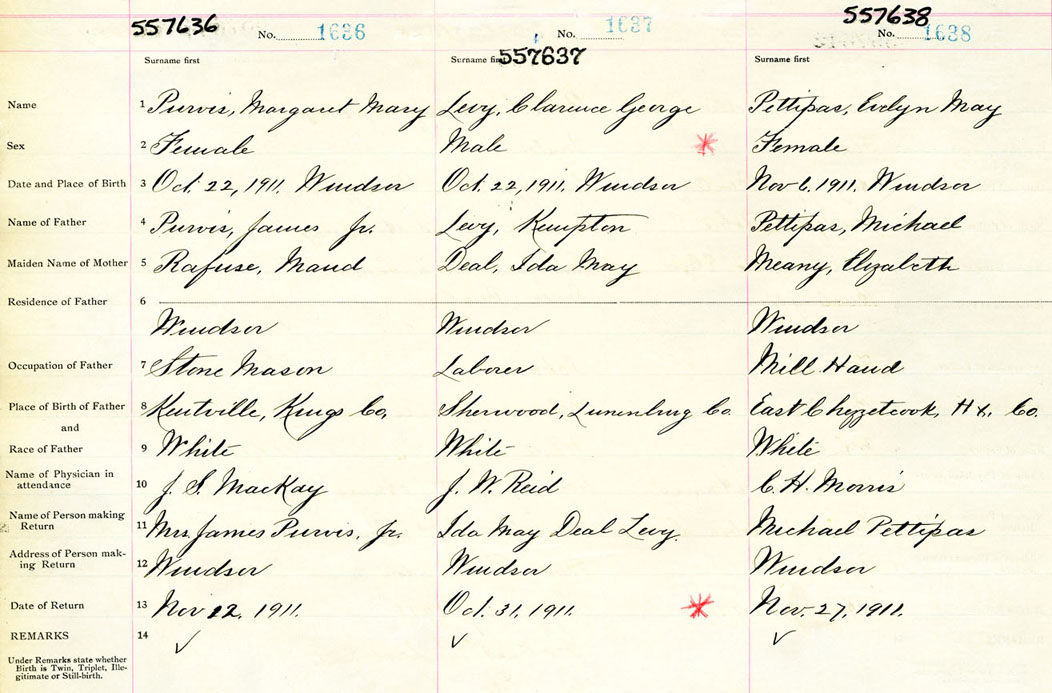 557636 No. 1636 No. 1637 557638 No. 1638
Surname first Surname first 557637 Surname first
Name 1 Purvis, Margaret Mary Levy, Clarence George Pettipas, Evelyn May
Sex 2 Female Male Female
Date and Place of Birth 3 Oct. 22, 1911. Windsor Oct. 22, 1911. Windsor Nov 6, 1911. Windsor
Name of Father 4 Purvis, James Jr. Levy, Kempton Pettipas, Michael
Maiden Name of Mother 5 Rafuse, Maud Deal, Ida May Meany, Elizabeth
Residence of Father 6
Windsor Windsor Windsor
Occupation of Father 7 Stone Mason Laborer Mill Hand
Place of Birth of Father 8 Kentville, Kings Co, Sherwood, Lunenburg Co. East Chezzetcook, Hx. Co.
and
Race of Father 9 White White White
Name of Physician in
attendance 10 J. S. MacKay J. W. Reid C. H. Morris
Name of Person making
Return 11 Mrs. James Purvis, Jr. Ida May Deal Levy. Michael Pettipas
Address of Person mak-
ing Return 12 Windsor Windsor Windsor
Date of Return 13 Nov 22, 1911. Oct. 31, 1911. Nov. 27, 1911.
REMARKS 14 ✓ ✓ ✓
Under Remarks state whether
Birth is Twin, Triplet, Ille-
gitimate or Still-birth.